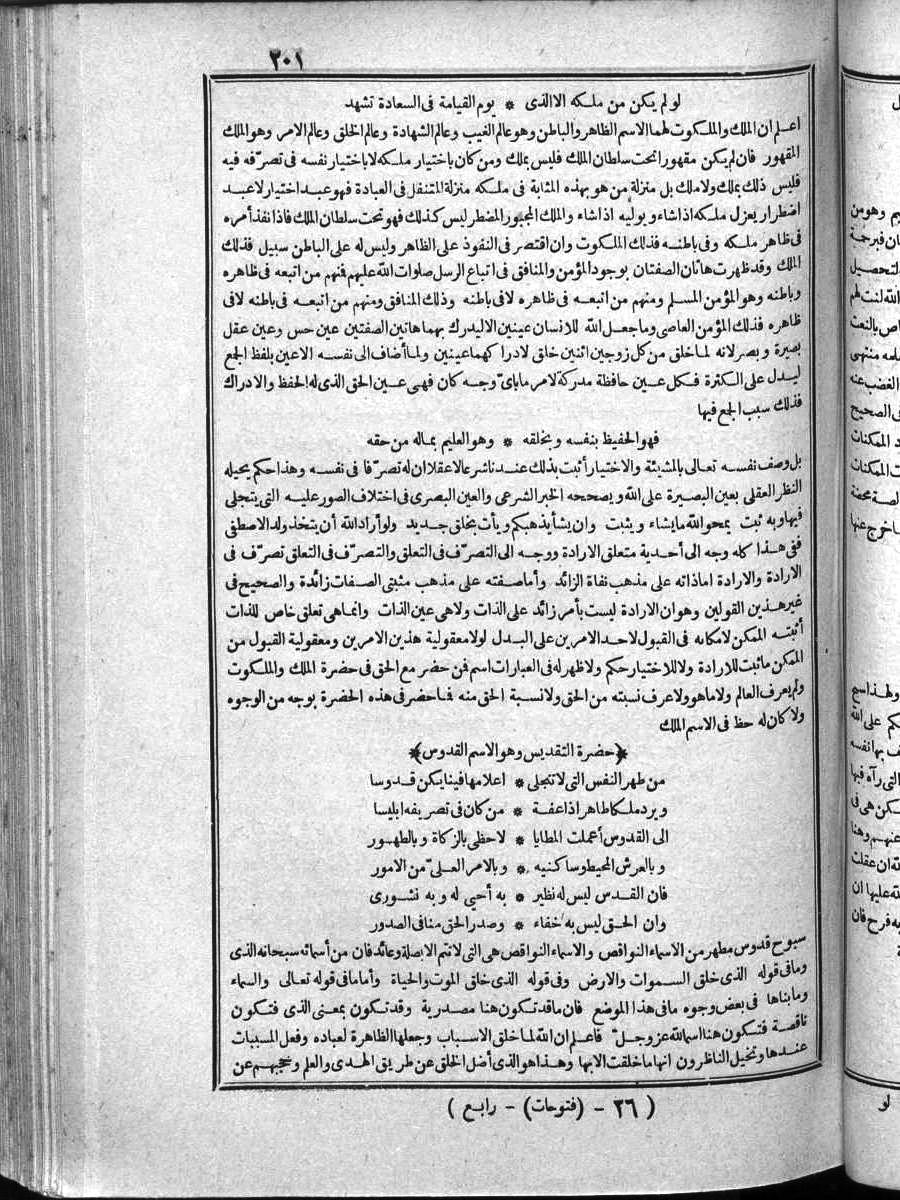 ٢٠١
لو لم يكن من ملكه الا الذى * يوم القيامة فى السعادة تشهد
اعلم ان الملك والملكوت لهما الاسم الظاهر والباطن وهو عالم الغيب وعالم الشهادة وعالم الخلق وعالم الامر وهو الملك
المقهور فان لم يكن مقهورا تحت سلطان الملك فليس بملك ومن كان باختيار ملكه لا باختيار نفسه فى تصرّفه فيه
فليس ذلك بملك ولا ملك بل منزلة من هو بهذه المثابة فى ملكه منزلة المتنفل فى العبادة فهو عبد اختيار لا عبد
اضطرار يعزل ملكه اذا شاء ويوليه اذا شاء والملك المجبور المضطر ليس كذلك فهو تحت سلطان الملك فاذا نفذ أمره
فى ظاهر ملكه وفى باطنه فذلك الملكوت وان اقتصر فى النفوذ على الظاهر وليس له على الباطن سبيل فذلك
الملك وقد ظهرت هاتان الصفتان بوجود المؤمن والمنافق فى اتباع الرسل صلوات الله عليهم فمنهم من اتبعه فى ظاهره
وباطنه وهو المؤمن المسلم ومنهم من اتبعه فى ظاهره لا فى باطنه وذلك المنافق ومنهم من اتبعه فى باطنه لا فى
ظاهره فذلك المؤمن العاصى وما جعل الله للانسان عينين الا ليدرك بهما هاتين الصفتين عين حس وعين عقل
بصيرة وبصر لانه لما خلق من كل زوجين اثنين خلق لادراكهما عينين ولما أضاف الى نفسه الاعين بلفظ الجمع
ليدل على الكثرة فكل عين حافظة مدركة لامر ما باىّ وجه كان فهى عين الحق الذى له الحفظ والادراك
فذلك سبب الجمع فيها
فهو الحفيظ بنفسه وبخلقه * وهو العليم بماله من حقه
بل وصف نفسه تعالى بالمشيئة والاختيار أثبت بذلك عندنا شرعا لا عقلا ان له تصرّفا فى نفسه وهذا حكم يحيله
النظر العقلى بعين البصيرة على الله ويصححه الخبر الشرعى والعين البصرى فى اختلاف الصور عليه التى يتجلى
فيها وبه ثبت يمحو الله ما يشاء ويثبت وان يشأ يذهبكم ويأت بخلق جديد ولو أراد الله أن يتخذ ولدا لاصطفى
ففى هذا كله وجه الى أحدية متعلق الارادة ووجه الى التصرّف فى التعلق والتصرّف فى التعلق تصرّف فى
الارادة والارادة اما ذاته على مذهب نفاة الزائد وأما صفته على مذهب مثبتى الصفات زائدة والصحيح فى
غير هذين القولين وهو ان الارادة ليست بأمر زائد على الذات ولا هى عين الذات وانما هى تعلق خاص للذات
أثبته الممكن لامكانه فى القبول لاحد الامرين على البدل لولا معقولية هذين الامرين ومعقولية القبول من
الممكن ما ثبت للارادة ولا للاختيار حكم ولا ظهر له فى العبارات اسم فمن حضر مع الحق فى حضرة الملك والملكوت
ولم يعرف العالم ولا ما هو ولا عرف نسبته من الحق ولا نسبة الحق منه فما حضر فى هذه الحضرة بوجه من الوجوه
ولا كان له حظ فى الاسم الملك
﴿حضرة التقديس وهو الاسم القدوس﴾
من طهر النفس التى لا تنجلى * اعلامها فينا يكن قدوسا
ويرد ملكا طاهرا ذا عفة * من كان فى تصريفه ابليسا
الى القدوس أعملت المطايا * لاحظى بالزكاة وبالطهور
وبالعرش المحيط وساكنيه * وبالامر العلىّ من الامور
فان القدس ليس له نظير * به أحيى له وبه نشورى
وان الحق ليس به خفاء * وصدر الحق منا فى الصدور
سبوح قدوس مطهر من الاسماء النواقص والاسماء النواقص هى التى لا تتم الا بصلة وعائد فان من أسمائه سبحانه الذى
وما فى قوله الذى خلق السموات والارض وفى قوله الذى خلق الموت والحياة وأما ما فى قوله تعالى والسماء
وما بناها فى بعض وجوه ما فى هذا الموضع فان ما قد تكون هنا مصدرية وقد تكون بمعنى الذى فتكون
ناقصة فتكون هنا اسما لله عز وجلّ فاعلم ان الله لما خلق الاسباب وجعلها الظاهرة لعباده وفعل المسببات
عندها وتخيل الناظرون انها ما خلقت الا بها وهذا هو الذى أضل الخلق عن طريق الهدى والعلم وحجبهم عن
( ٢٦ - (فتوحات) - رابع )
لو